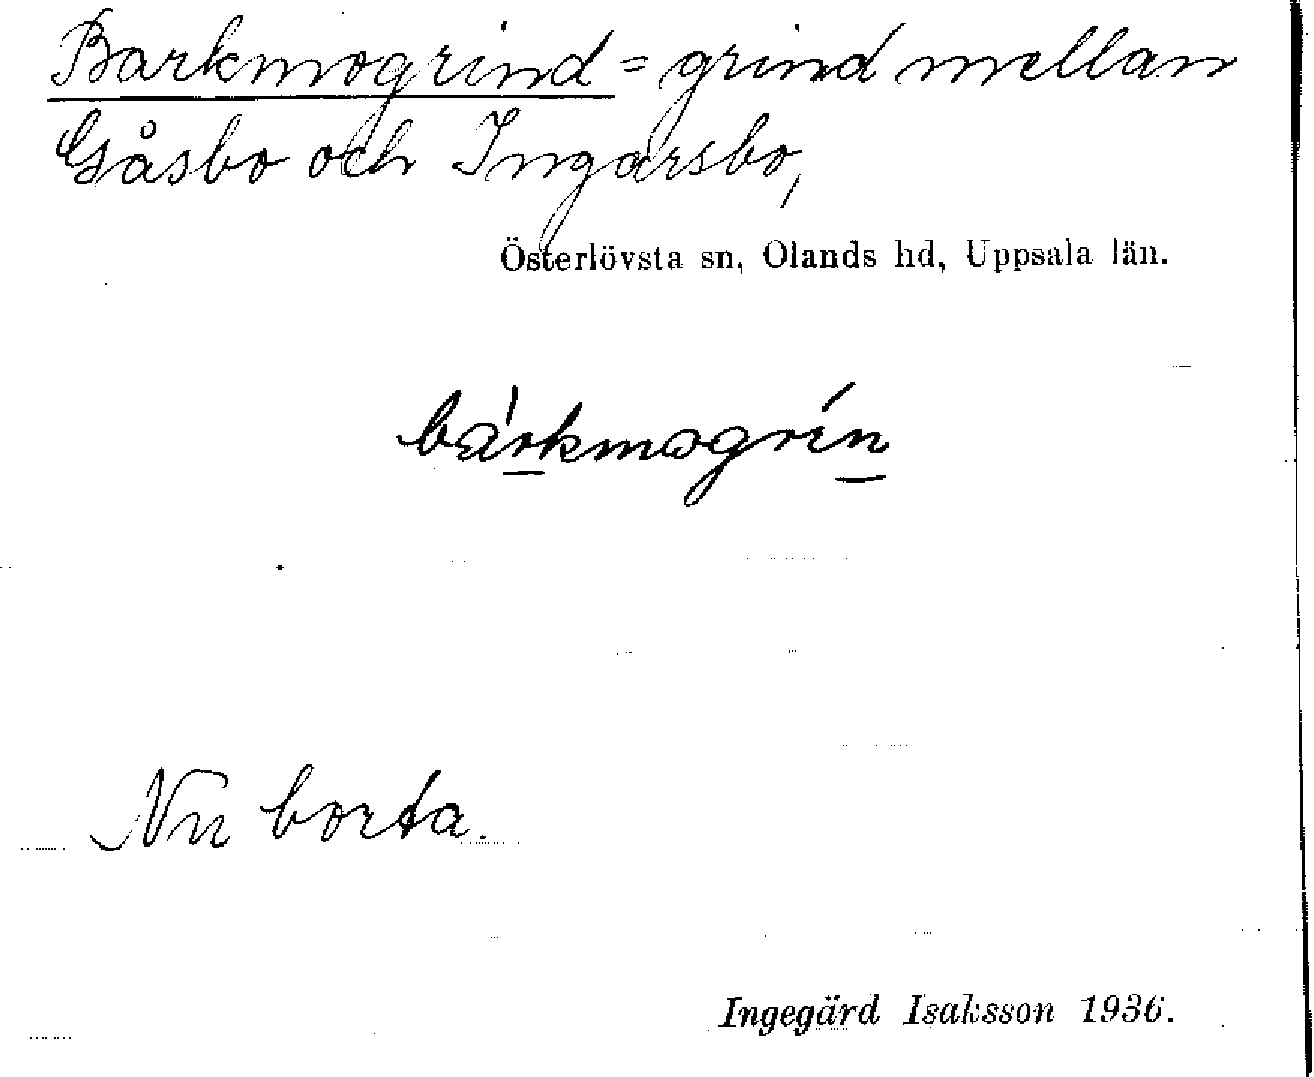 Barkmogrind = grind mellan
Gåsbo och Ingarsbo,
Österlövsta sn, Olands hd, Uppsala län.
bàrkmogrín
Nu borta.
Ingegärd Isaksson 1936.